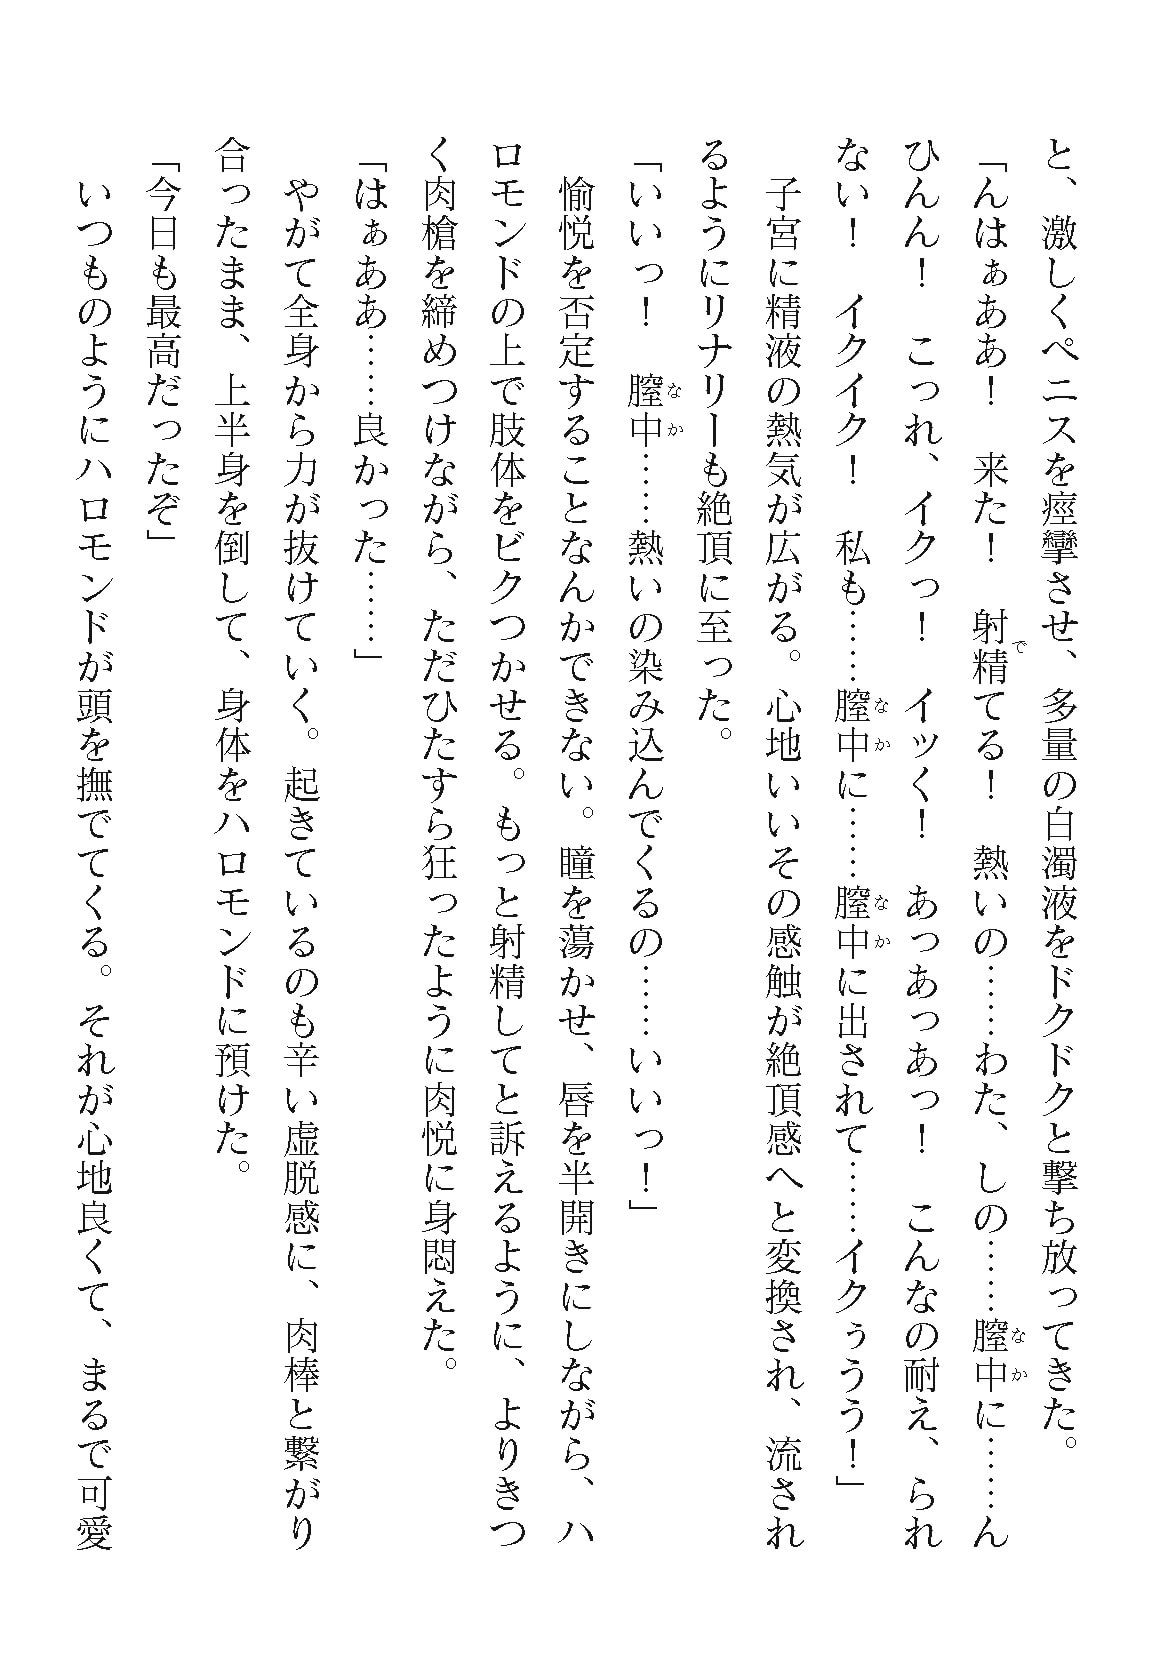 と、激しくペニスを痙攣させ、多量の白濁液をドクドクと撃ち放ってきた。
「んはぁああ！　来た！　射精(で)てる！　熱いの……わた、しの……膣中(なか)に……ん
ひんん！　こっれ、イクっ！　イッく！　あっあっあっ！　こんなの耐え、られ
ない！　イクイク！　私も……膣中(なか)に……膣中(なか)に出されて……イクぅうう！」
　子宮に精液の熱気が広がる。心地いいその感触が絶頂感へと変換され、流され
るようにリナリーも絶頂に至った。
「いいっ！　膣中(なか)……熱いの染み込んでくるの……いいっ！」
　愉悦を否定することなんかできない。瞳を蕩かせ、唇を半開きにしながら、ハ
ロモンドの上で肢体をビクつかせる。もっと射精してと訴えるように、よりきつ
く肉槍を締めつけながら、ただひたすら狂ったように肉悦に身悶えた。
「はぁああ……良かった……」
　やがて全身から力が抜けていく。起きているのも辛い虚脱感に、肉棒と繋がり
合ったまま、上半身を倒して、身体をハロモンドに預けた。
「今日も最高だったぞ」
　いつものようにハロモンドが頭を撫でてくる。それが心地良くて、まるで可愛